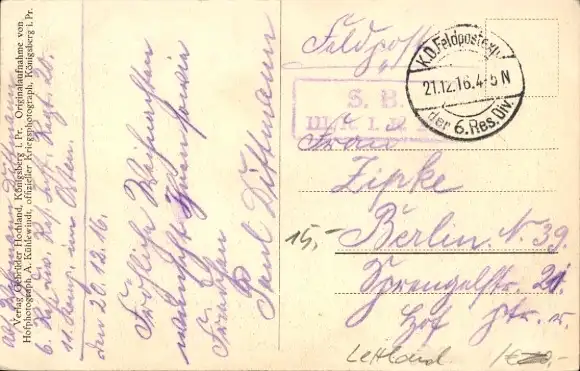 Verlag Gebrüder Hochland, Königsberg i. Pr. Originalaufnahme von
Hofphotograph, A. Kühlewindt, offizieller Kriegsphotograph, Königsberg i. Pr.
Dittmann
6. Res. Div. Res. Inf. Regt. 20.
11. Komp. im Osten.
den 20.12.16.
Fröhliche Weihnachten
wünscht Ihnen
Paul Dittmann
Feldpost
K.D. Feldpostexp.
21.12.16. 4-5 N
der 6. Res. Div.
S. B.
Frau
Zipke
15,-
Berlin. N. 39.
Sprengelstr. 21.
Hof
Lettland